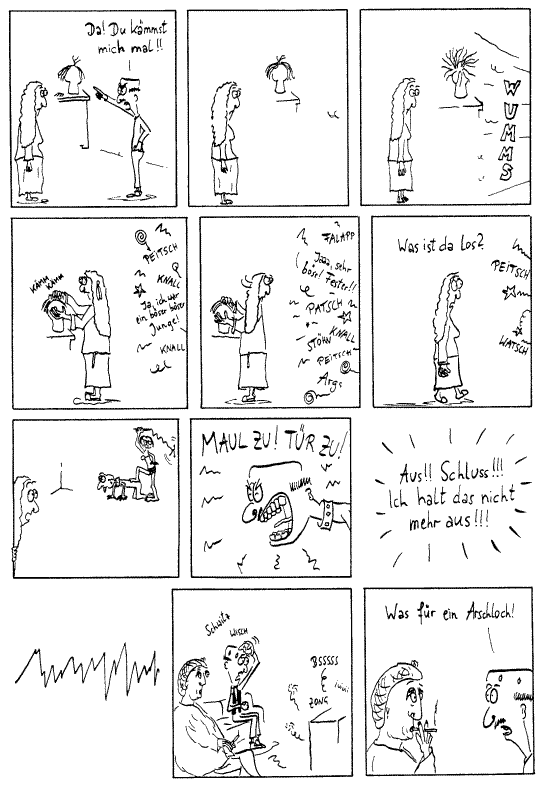 Da! Du kämmst
mich mal!!
WUMMS
KÄMM
KÄMM
PEITSCH
KNALL
Ja, ich war
ein böser böser
Junge!
KNALL
FALAPP
Jaaa, sehr
böse! Fester!!
PATSCH
KNALL
STÖHN
PEITSCH
Args
Was ist da los?
PEITSCH
WATSCH
MAUL ZU! TÜR ZU!
Aus!! Schluss!!!
Ich halt das nicht
mehr aus!!!
Schwitz
WISCH
BSSSSS
ZONG
Was für ein Arschloch!